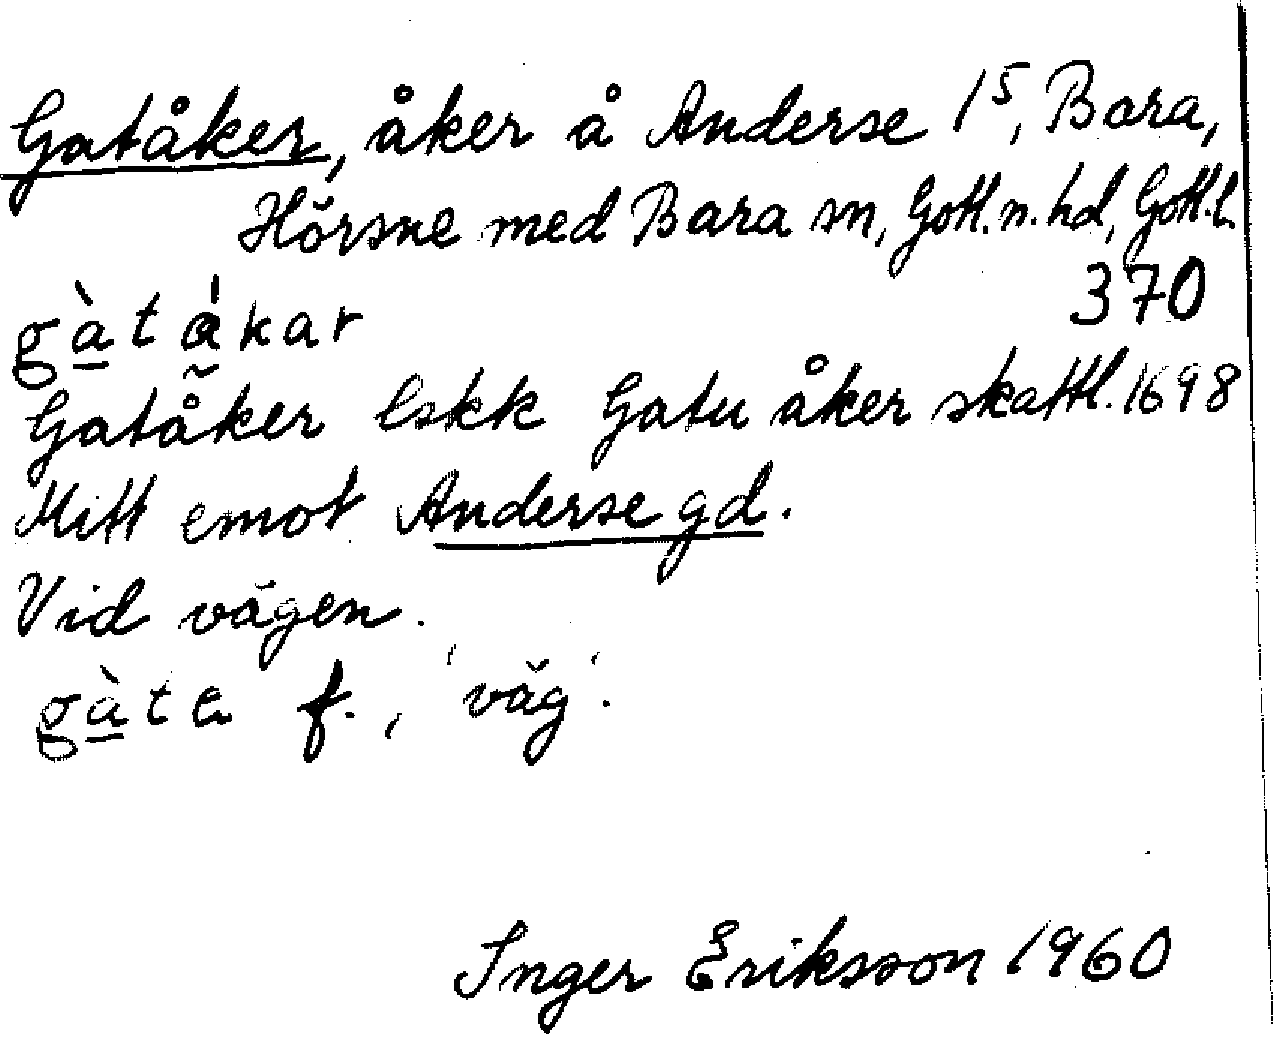 Gatåker, åker å Anderse 1⁵, Bara,
Hörsne med Bara sn, Gotl. n. hd, Gotl. l.
370
gàtåkar
Gatåker Eskk Gatu åker skattl. 1698
Mitt emot Anderse gd.
Vid vägen.
gàta f., 'väg'.
Inger Eriksson 1960